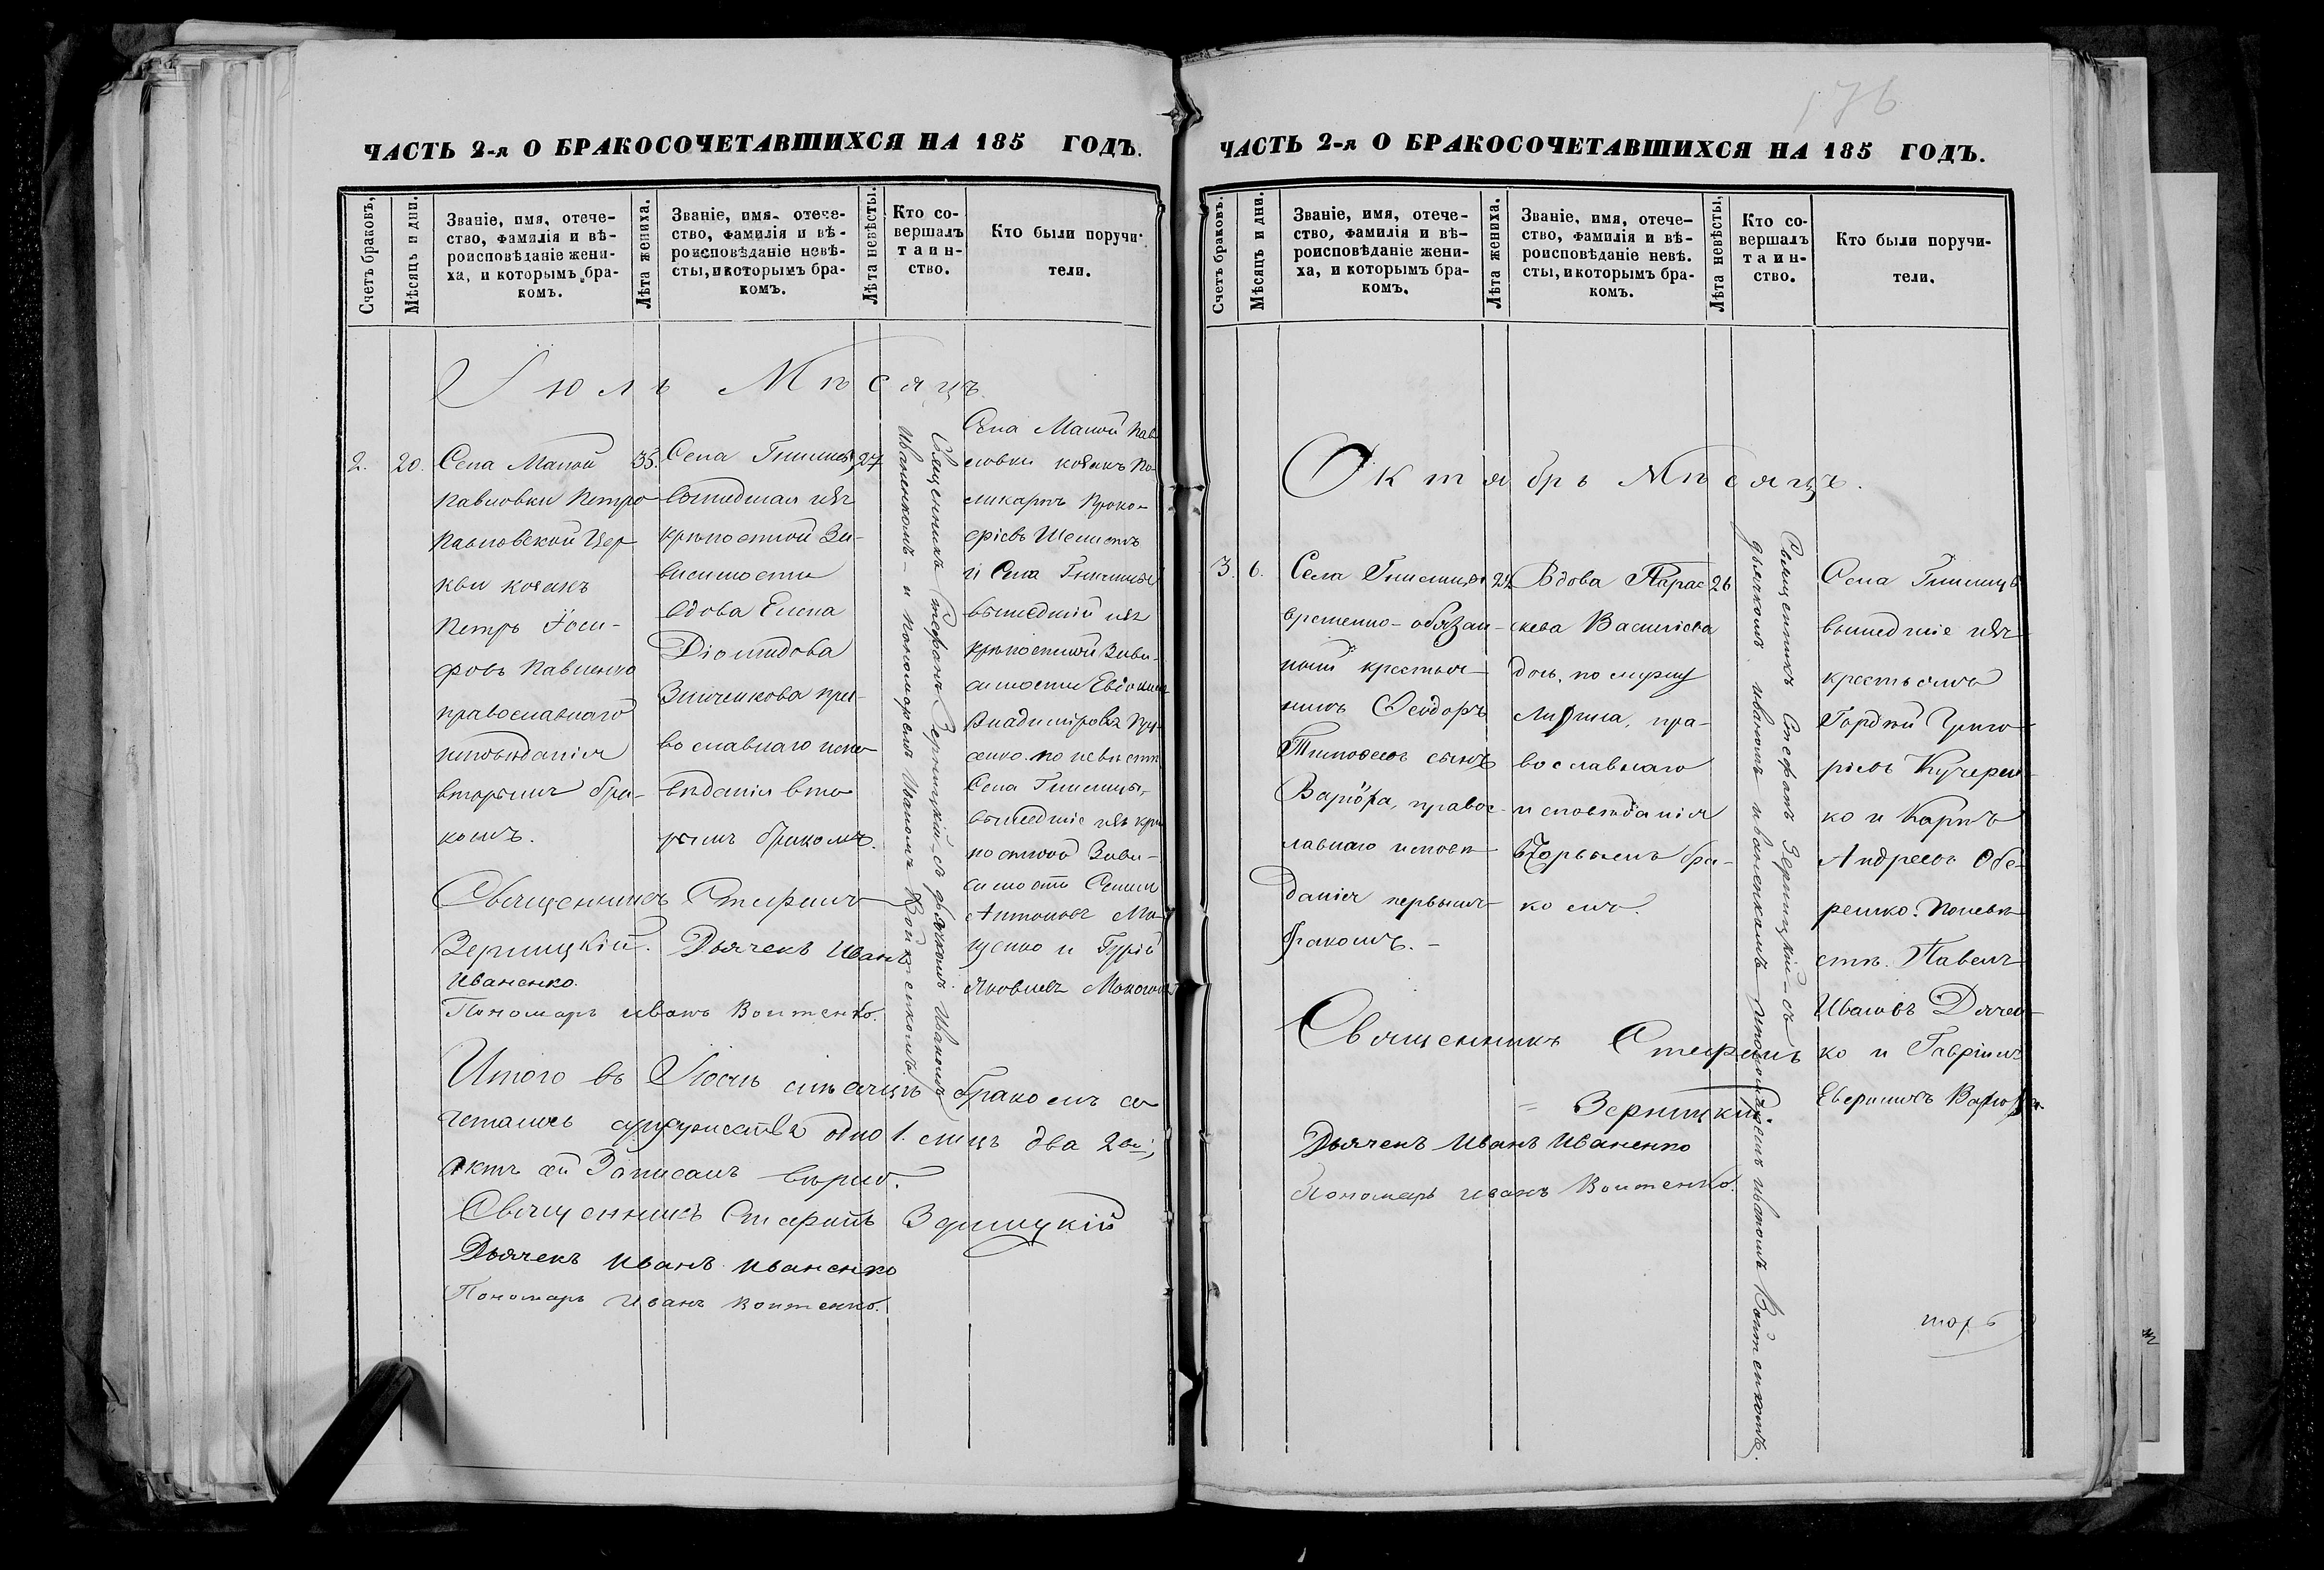 176
ЧАСТЬ 2-я О БРАКОСОЧЕТАВШИХСЯ НА 185 ГОДЪ.
Счетъ браковъ.
Мѣсяцъ и дни.
Званіе, имя, отече-
ство, фамилія и вѣ-
роисповѣданіе жени-
ха, и которымъ бра-
комъ.
Лѣта жениха.
Званіе, имя, отече-
ство, фамилія и вѣ-
роисповѣданіе невѣ-
сты, и которымъ бра-
комъ.
Лѣта невѣсты.
Кто со-
вершалъ
таин-
ство.
Кто были поручи-
тели.
Іюль Мѣсяцъ
2.
20.
Села Малой
Павловки Петро
Павловской Цер
кви козакъ
Петръ Іоси-
фовъ Павленко
православнаго
исповѣданія
вторымъ бра-
комъ.
35.
Села
вышедшая изъ
крѣпостной За-
висимости
вдова Елена
Діомидова
Зинченкова пра-
вославнаго испо
вѣданія вто
рымъ бракомъ.
27
Священникъ Стефанъ Зерницкій - съ дьячкомъ Иваномъ
Иваненкомъ - и пономаремъ Иваномъ Войтенкомъ
Села Малой Пав
ловки козакъ По
ликарпъ Проко-
фіевъ
и Села
вышедшій изъ
крѣпостной Зави-
симости Евдокимъ
Владиміровъ
по невѣстѣ
Села
вышедшіе изъ крѣ
постной Зави-
симости
Антоновъ
и Гурій
Яковлевъ
Священникъ Стефанъ
Зерницкій. Дьячекъ Иванъ
Иваненко.
Пономарь Иванъ Войтенко.
Итого въ Іюлѣ мѣсяцѣ бракомъ со
четалось супружества одно 1. лицъ два 2
Актъ сей Записанъ вѣрно.
Священникъ Стефанъ Зерницкій
Дьячекъ Иванъ Иваненко
Пономарь Иванъ Войтенко.
ЧАСТЬ 2-я О БРАКОСОЧЕТАВШИХСЯ НА 185 ГОДЪ.
Счетъ браковъ.
Мѣсяцъ и дни.
Званіе, имя, отече-
ство, фамилія и вѣ-
роисповѣданіе жени-
ха, и которымъ бра-
комъ.
Лѣта жениха.
Званіе, имя, отече-
ство, фамилія и вѣ-
роисповѣданіе невѣ.
сты, и которымъ бра-
комъ.
Лѣта невѣсты.
Кто со-
вершалъ
таин-
ство.
Кто были поручи-
тели.
Октябрь Мѣсяцъ.
3.
6.
Села
временно-обязан-
ный крестья-
нинъ Ѳеодоръ
Тимофеевъ сынъ
правос-
лавнаго исповѣ
данія первымъ
бракомъ. -
Вдова Парас
кева Василіева
дочь, по мужу
пра-
вославнаго
исповѣданія
вторымъ бра-
комъ.
26
Священникъ Стефанъ Зерницкій - съ
дьячкомъ Иваномъ Иваненкомъ и пономаремъ Иваномъ Войтенкомъ.
Села
вышедшіе изъ
крестьяне
Гордѣй Григо-
ріевъ Кучерен-
ко и Карпъ
Андреевъ Обе-
ремко. По невѣ
стѣ. Павелъ
Ивановъ Дячен-
ко и Гавріилъ
Священникъ Стефанъ
= Зерницкій
Дьячекъ Иванъ Иваненко
Пономарь Иванъ Войтенко.